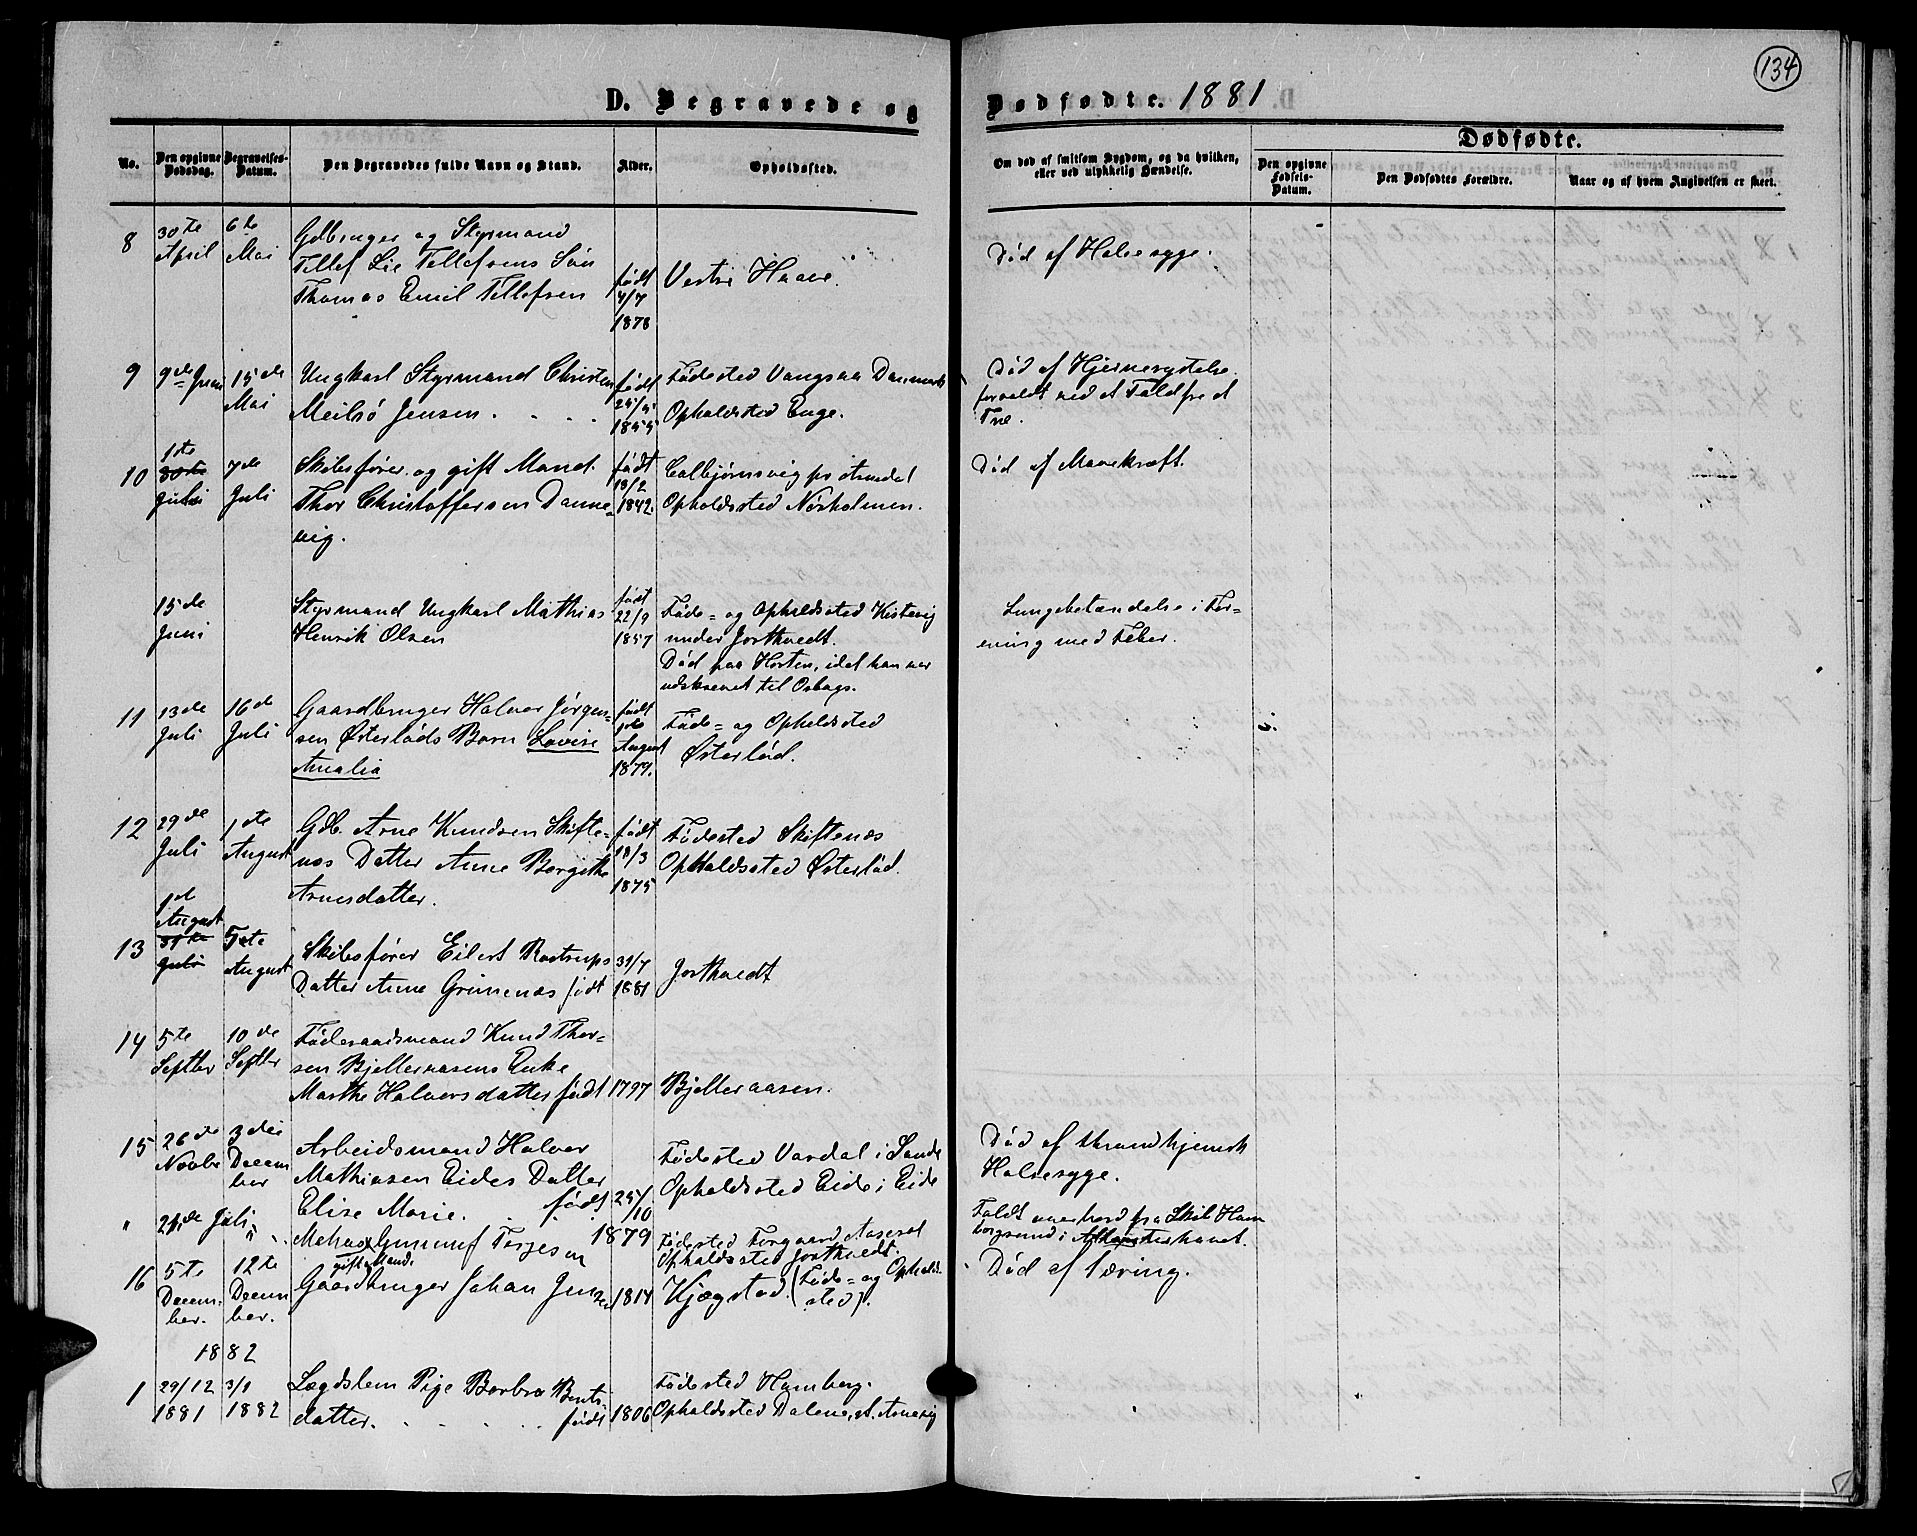 134
D. Begravede og
Dødfødte. 1881
Dødfødte.
No.
Den opgivne Dødsdag.
Begravelses-Datum.
Den Begravedes fulde Navn og Stand.
Alder.
Opholdssted.
Om død af smitsom Sygdom, og da hvilken, eller ved ulykkelig Hændelse.
Den opgivne Fødsels-Datum.
Den Dødfødtes Forældre.
Naar og af hvem Angivelsen er skeet.
8
30te April
6te Mai
Gdbruger og Styrmand
Tellef Lie Tellefsens Søn
Thomas Emil Tellefsen
født 4/7 1878
Vestre Haave.
Død af Halsesyge.
9
9de
15de Mai
Ungkarl Styrmand Christen
Meilsø Jensen.
født
1855
Fødested Vangsaa Danmark
Opholdssted Enge.
Død af Hjernerystelse
forvoldt ved et Fald fra et
Træ.
10
1te
30te
Juli
7de Juli
Skibsfører og gift Mand
Thor Christoffersen Danne-
vig.
født 18/2 1842.
Calbjørnsvig pr Arendal
Opholdssted Nørholmen.
Død af Mavekræft.
15de Juni
Styrmand Ungkarl Mathias
Henrik Olsen
født 22/9 1857
Føde- og Opholdssted Kistevig
under Jortkvedt.
Død paa Horten, idet han var
udskrevet til Orlogs.
Lungebetændelse i For-
ening med Feber.
11
13de Juli
16de Juli
Gaardbruger Halvor Jørgen-
sen Østerløds Barn Lovise
Amalia
født
August
1879.
Føde- og Opholdssted
Østerlød.
12
29de Juli
1te August
Gdb. Arne Knudsen Skifte-
næs Datter Anne Borgithe
Arnesdatter.
født 18/3 1875
Fødested Skiftenæs
Opholdssted Østerlød.
13
1de August
31te Juli
5te August
Skibsfører Eilert Rostrups
Datter Anne Grimenæs født
31/7 1881
Jortkvedt
14
5te Septbr
10de Septbr
Føderaadsmand Knud Thor-
sen Bjelleraasens Enke
Marthe Halvorsdatter født
1797
Bjelleraasen.
15
26de Novbr
3die Decem
ber
Arbeidsmand Halvor
Mathiasen Eides Datter
Elise Marie. født
25/10
1879
Fødested Vardal i Lande
Opholdssted Eide i Eide
Død af throndhjemsk
Halsesyge.
"
21de Juli
"
Matros Gunnuf Terjesen
Fødested Forgaard Aaseral
Opholdssted Jortkvedt.
Faldt overbord fra Skib Ham
borgsund i Atlanterhavet.
16
5te Decem-
ber.
12te Decem
ber.
gift Mand.
Gaardbruger Johan Jensen
1814
Kjægstad. (Føde- og Opholds-
sted).
Død af Tæring.
1882
1
29/12 1881
3/1 1882
Lægdslem Pige Barbro Bents-
datter. født
1806
Fødested Homberg.
Opholdssted Dalene, st. Arnevig